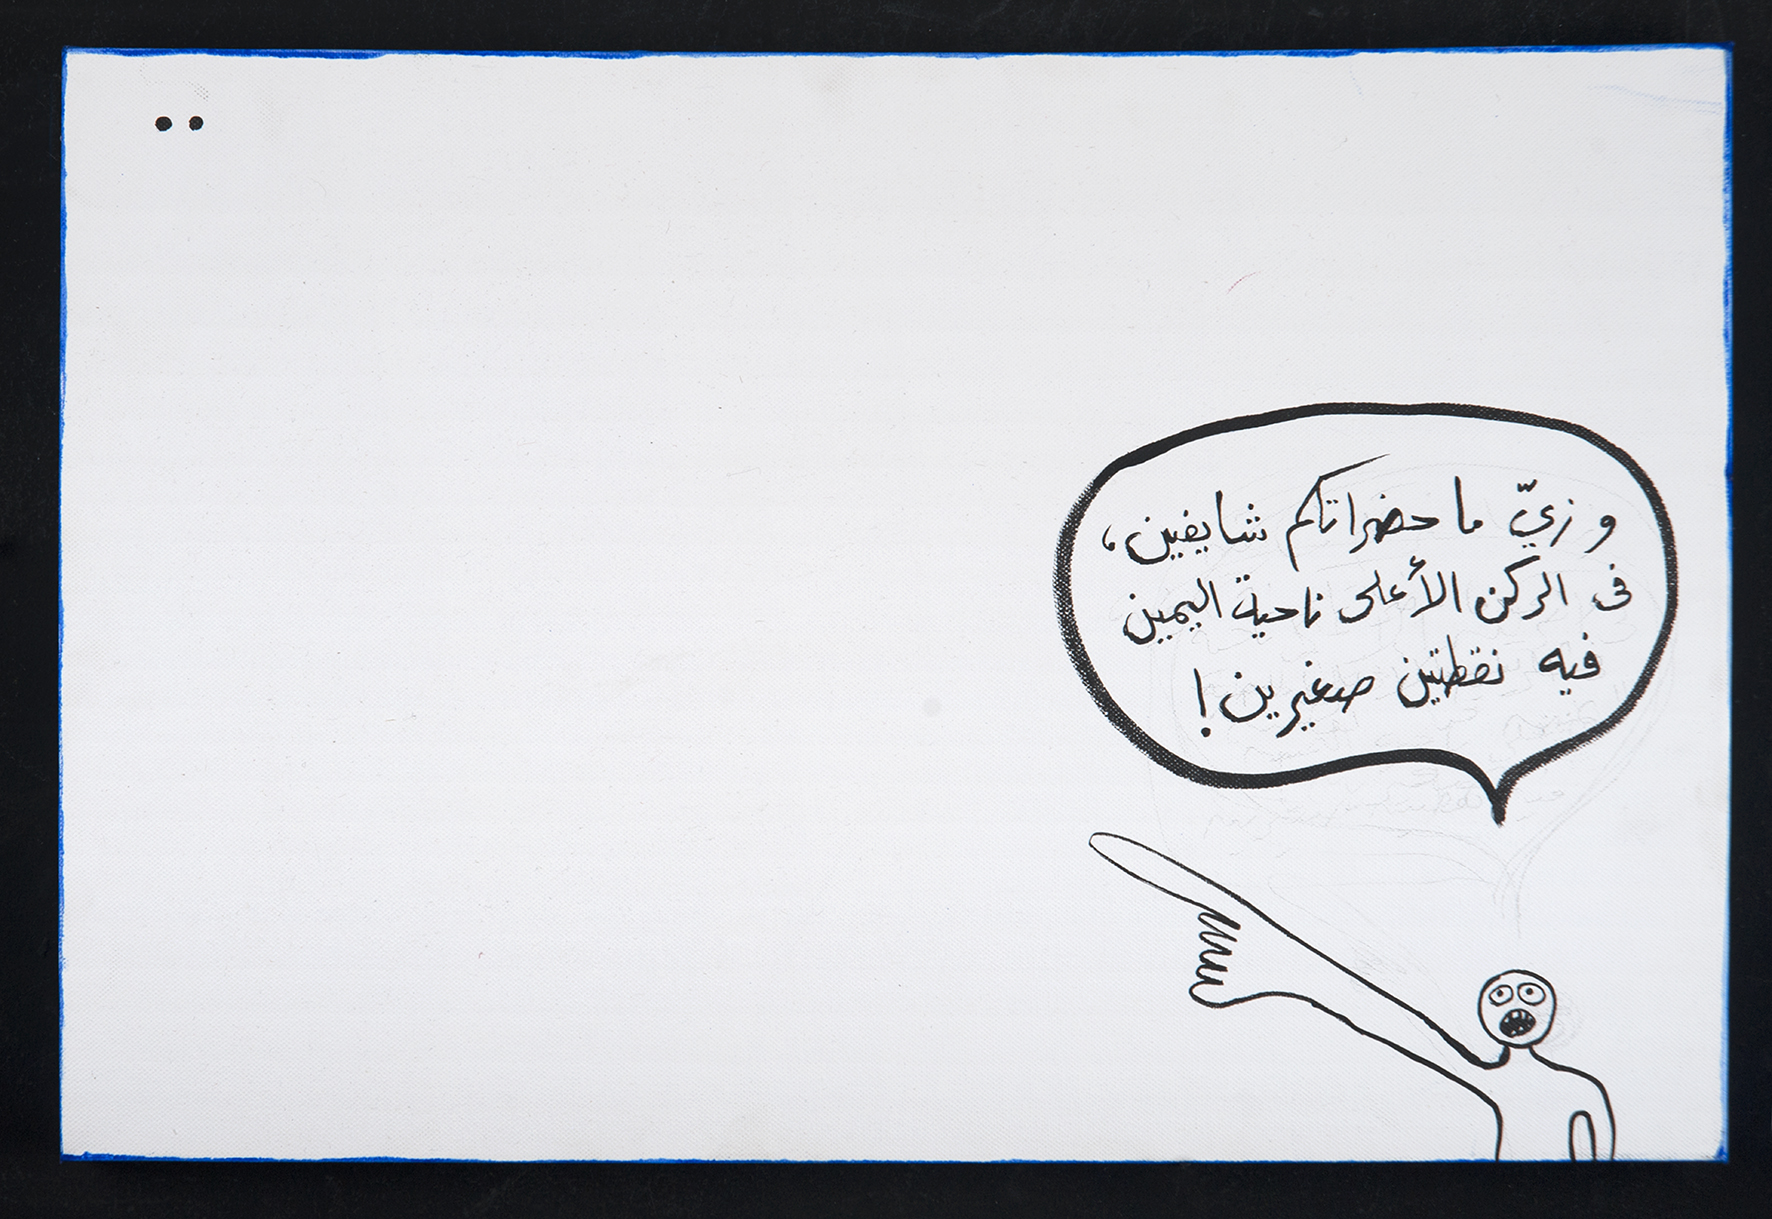 و زيّ ما حضراتكم شايفين،
فى الركن الأعلى ناحية اليمين
فيه نقطتين صغيرين!